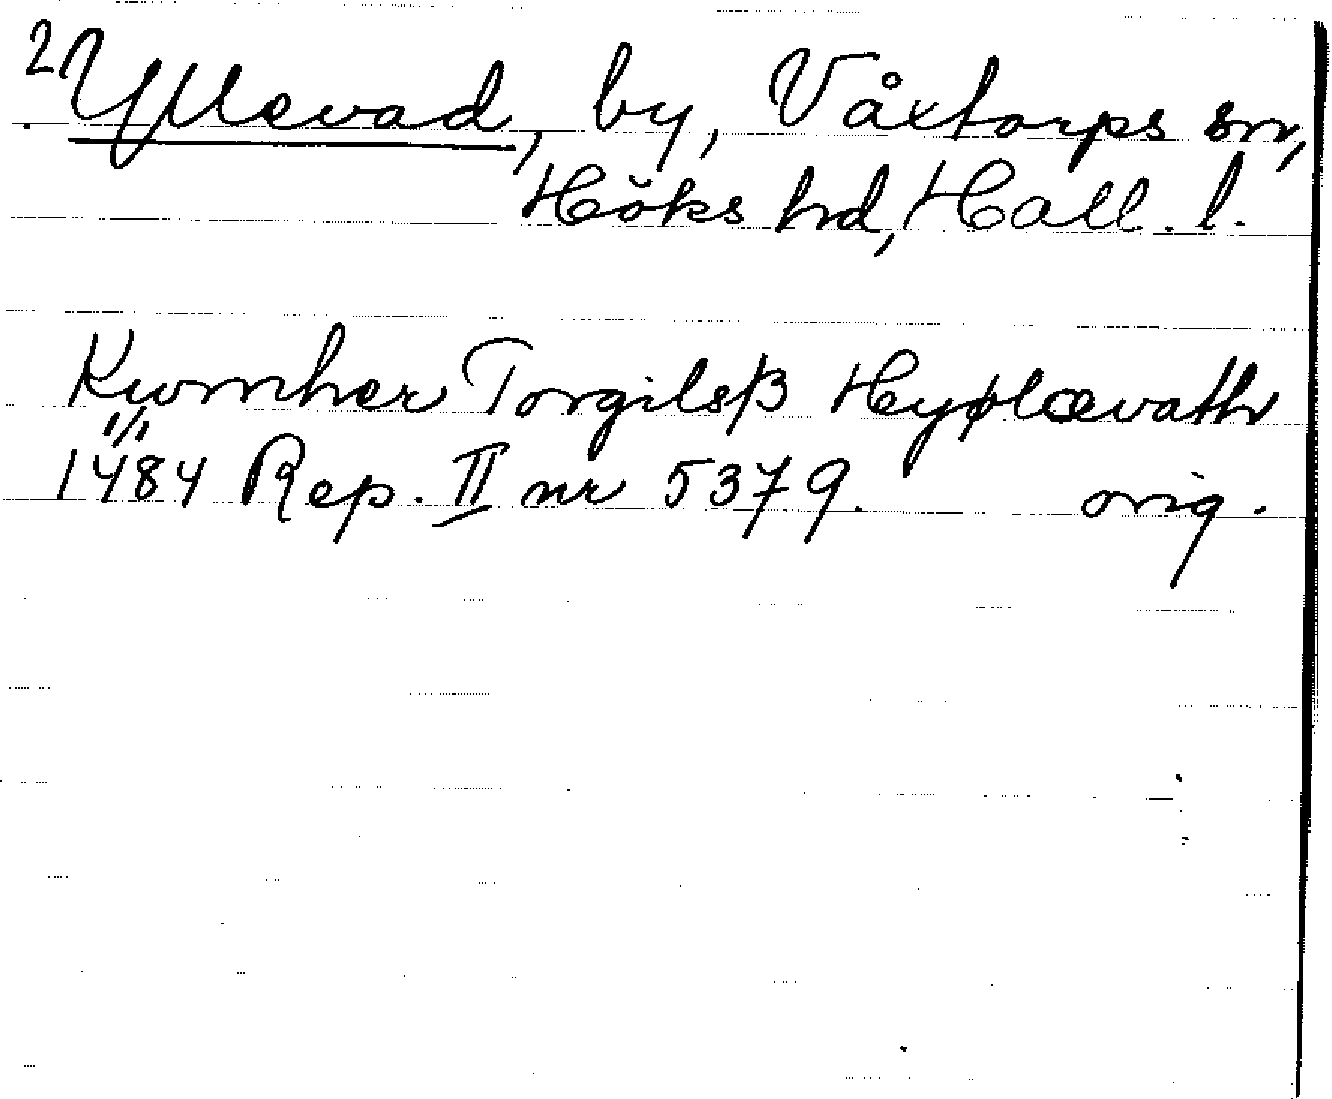 2 Yllevad, by, Våxtorps sn,
Höks hd, Hall. l.
Kwnher Torgilsß Hyølævath
"/"
1484 Rep. II nr 5379. orig.